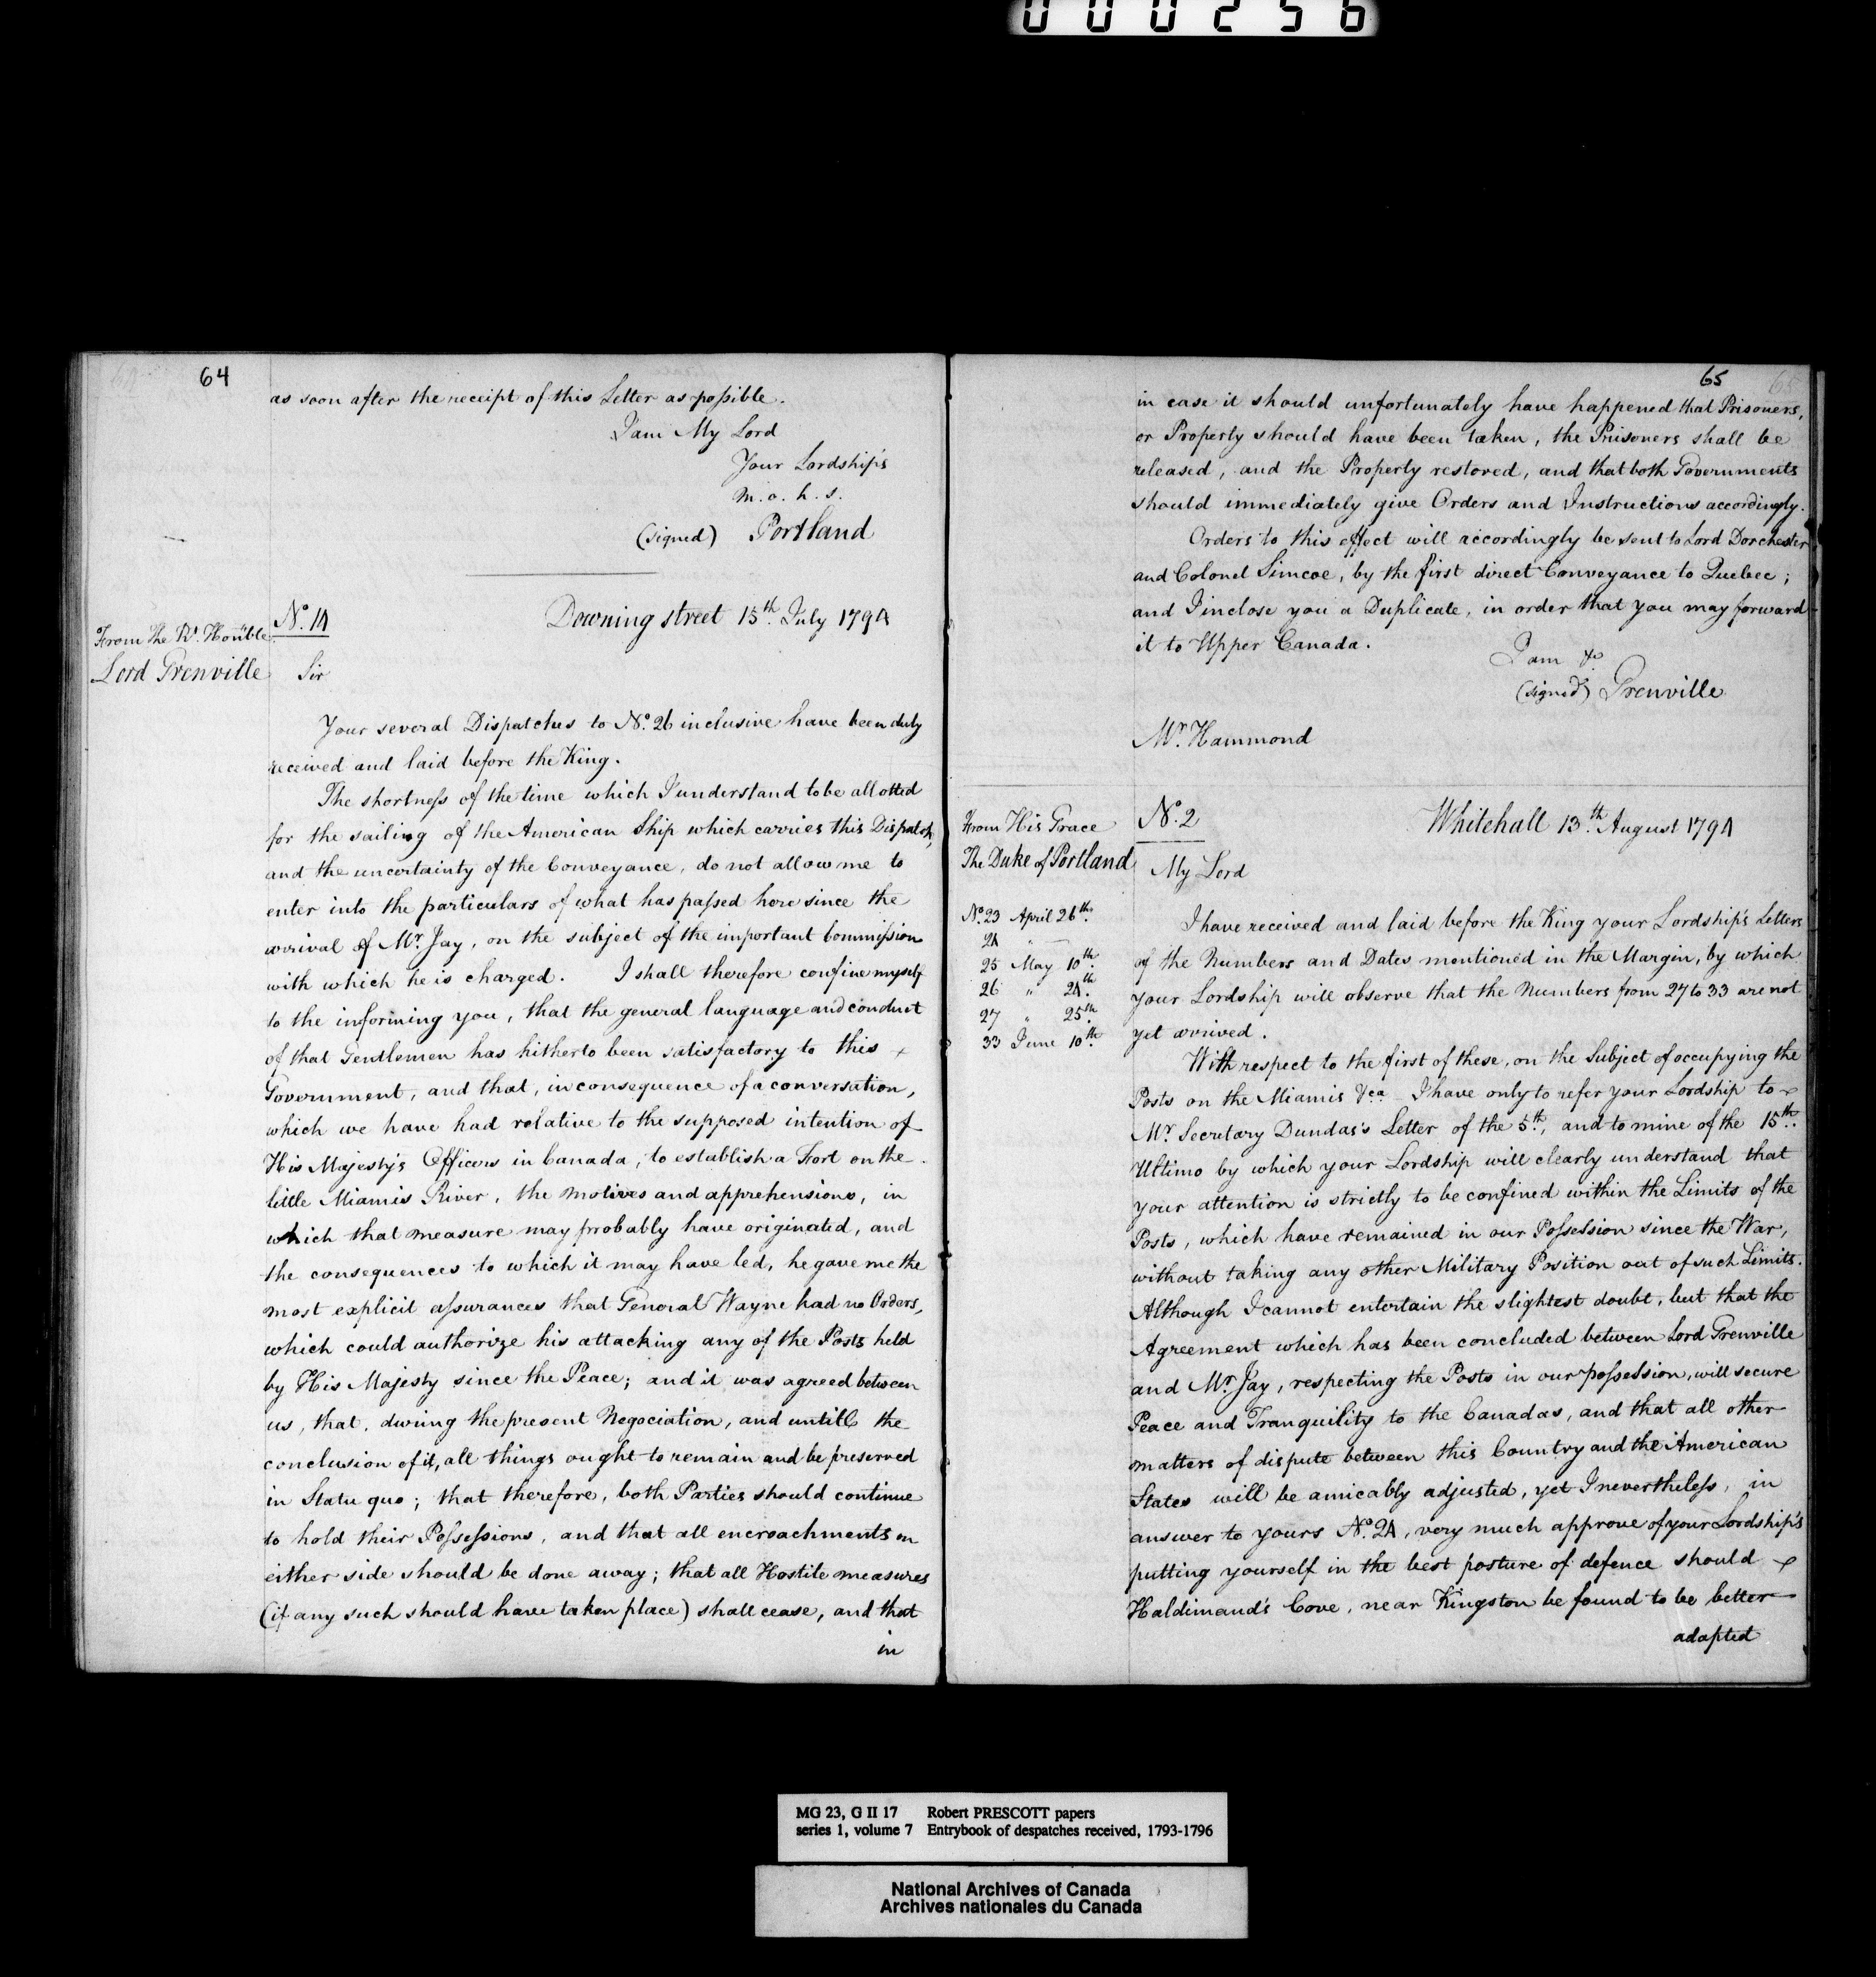 000256
64
as soon after the receipt of this Letter as possible.
I am My Lord
Your Lordship's
m. o. h. s.
(signed) Portland
From the Rt. Honble.
Lord Grenville
No. 14
Downing street 15th. July 1794
Sir
Your several Dispatches to No. 26 inclusive have been duly
received and laid before the King.
The shortness of the time which I understand to be allotted
for the sailing of the American Ship which carries this Dispatch,
and the uncertainty of the Conveyance, do not allow me to
enter into the particulars of what has passed here since the
arrival of Mr. Jay, on the subject of the important Commission
with which he is charged. I shall therefore confine myself
to the informing you, that the general language and conduct
of that Gentlemen has hitherto been satisfactory to this
Government, and that, in consequence of a conversation,
which we have had relative to the supposed intention of
His Majesty's Officers in Canada, to establish a Fort on the
little Miamis River, the motives and apprehensions, in
which that measure may probably have originated, and
the consequences to which it may have led, he gave me the
most explicit assurances that General Wayne had no Orders,
which could authorize his attacking any of the Posts held
by His Majesty since the Peace; and it was agreed between
us, that, during the present Negociation, and untill the
conclusion of it, all things ought to remain and be preserved
in Statu quo; that therefore, both Parties should continue
to hold their Possessions, and that all encroachments on
either side should be done away; that all Hostile measures
(if any such should have taken place) shall cease, and that
in
65
in case it should unfortunately have happened that Prisoners,
or Property should have been taken, the Prisoners shall be
released, and the Property restored, and that both Governments
should immediately give Orders and Instructions accordingly.
Orders to this effect will accordingly be sent to Lord Dorchester
and Colonel Simcoe, by the first direct Conveyance to Quebec;
and I inclose you a Duplicate, in order that you may forward
it to Upper Canada.
I am &c
(signed) Grenville
Mr. Hammond
From His Grace
The Duke of Portland
No. 2
Whitehall 13th. August 1794
My Lord
No. 23 April 26th.
24 "
25 May 10th.
26 " 24th.
27 " 25th.
33 June 10th.
I have received and laid before the King your Lordship's Letters
of the Numbers and Dates mentioned in the Margin, by which
your Lordship will observe that the Numbers from 27 to 33 are not
yet arrived.
With respect to the first of these, on the Subject of occupying the
Posts on the Miamis &ca I have only to refer your Lordship to
Mr. Secretary Dundas's Letter of the 5th, and to mine of the 15th.
Ultimo by which your Lordship will clearly understand that
your attention is strictly to be confined within the Limits of the
Posts, which have remained in our Possession since the War,
without taking any other Military Position out of such Limits.
Although I cannot entertain the slightest doubt, but that the
Agreement which has been concluded between Lord Grenville
and Mr. Jay, respecting the Posts in our possession, will secure
Peace and Tranquility to the Canadas, and that all other
matters of dispute between this Country and the American
States will be amicably adjusted, yet I nevertheless, in
answer to yours No. 24, very much approve of your Lordship's
putting yourself in the best posture of defence should
Haldimand's Cove, near Kingston be found to be better
adapted
MG 23, G II 17 Robert PRESCOTT papers
series 1, volume 7 Entrybook of despatches received, 1793-1796
National Archives of Canada
Archives nationales du Canada